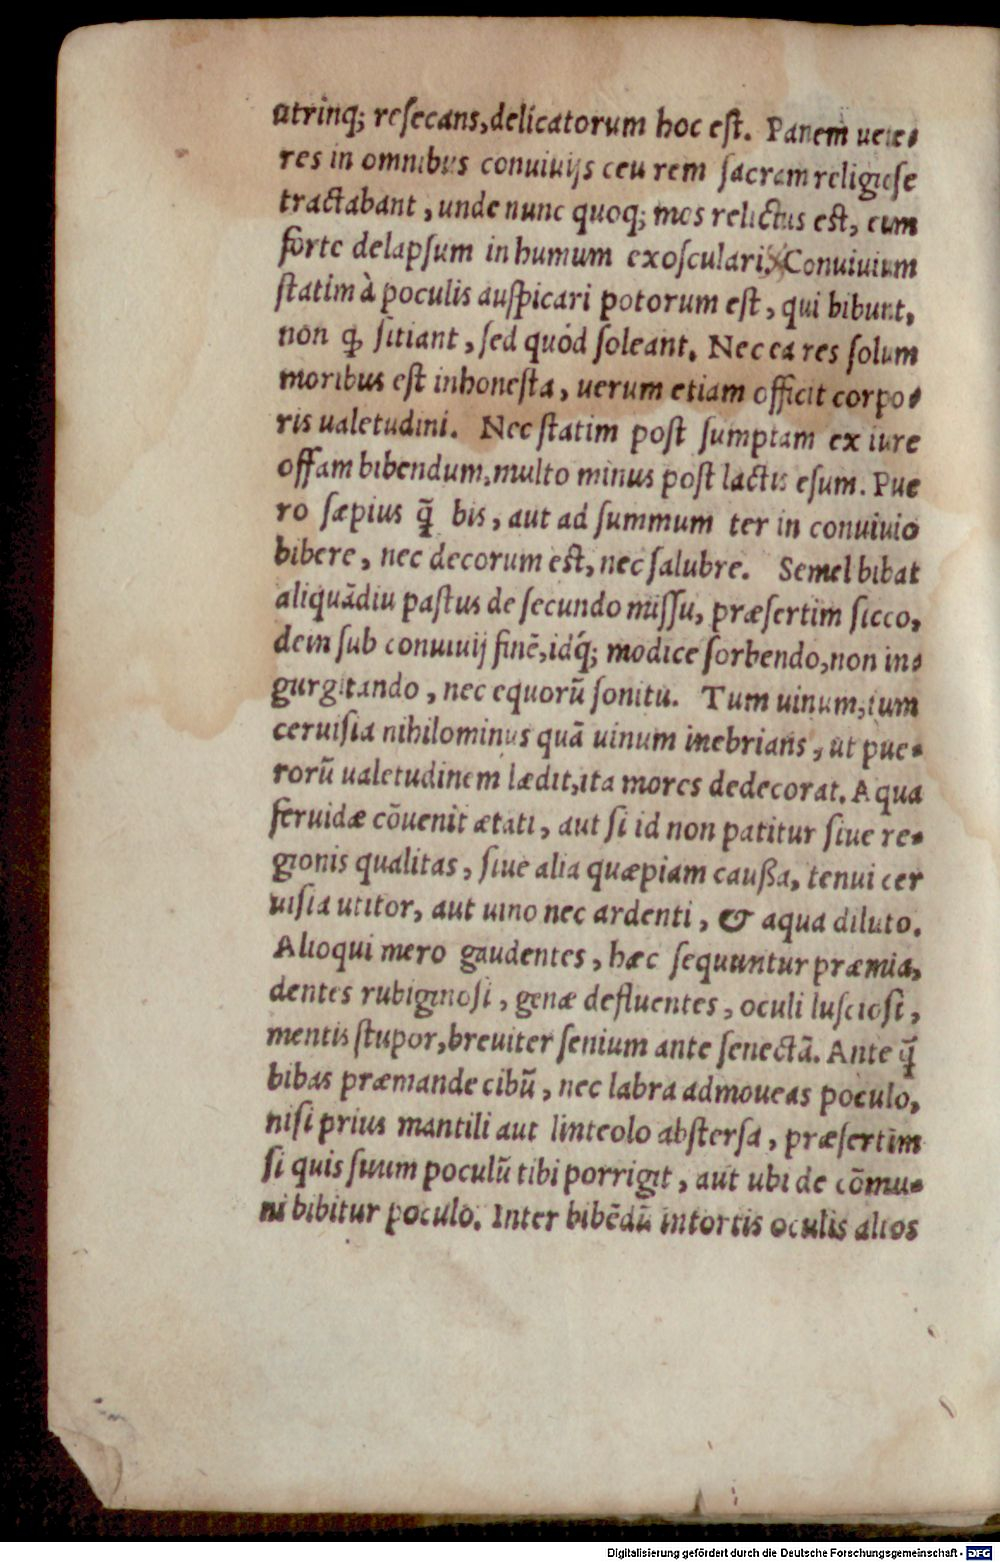 utrinq; reſecans, delicatorum hoc eſt. Panem uete-
res in omnibus conuiuijs ceu rem ſacram religioſe
tractabant, unde nunc quoq; mos relictus est, eum
forte delapſum in humum exoſculari. Conuiuium
ſtatim à poculis auſpicari potorum eſt, qui bibunt,
non ꝙ ſitiant, ſed quòd ſoleant. Nec ea res ſolum
moribus eſt inhoneſta, uerum etiam officit corpo-
ris ualetudini. Nec ſtatim poſt ſumptam ex iure
offam bibendum, multo minus poſt lactis eſum. Pue
ro ſæpius ꝗ̃ bis, aut ad ſummum ter in conuiuio
bibere, nec decorum est, nec ſalubre. Semel bibat
aliquãdiu paſtus de ſecundo miſſu, præſertim ſicco,
dein ſub conuiuij finẽ, idq́; modice ſorbendo, non in-
gurgitando, nec equorũ ſonitu. Tum uinum, tum
ceruiſia nihilominus quã uinum inebrians, ut pue-
rorũ ualetudinem lædit, ita mores dedecorat. Aqua
feruidæ cõuenit ætati, aut ſi id non patitur ſiue re-
gionis qualitas, ſiue alia quæpiam cauſsa, tenui cer
uiſia utitor, aut uino nec ardenti, & aqua diluto.
Alioqui mero gaudentes, hæc ſequuntur præmia,
dentes rubiginoſi, genæ defluentes, oculi luſcioſi,
mentis ſtupor, breuiter ſenium ante ſenectã. Ante ꝗ̃
bibas præmande cibũ, nec labra admoueas poculo,
niſi prius mantili aut linteolo abſterſa, præſertim
ſi quis ſuum poculũ tibi porrigit, aut ubi de cõmu-
ni bibitur poculo. Inter bibẽdũ intortis oculis alios
Digitalisierung gefördert durch die Deutsche Forschungsgemeinschaft - DFG